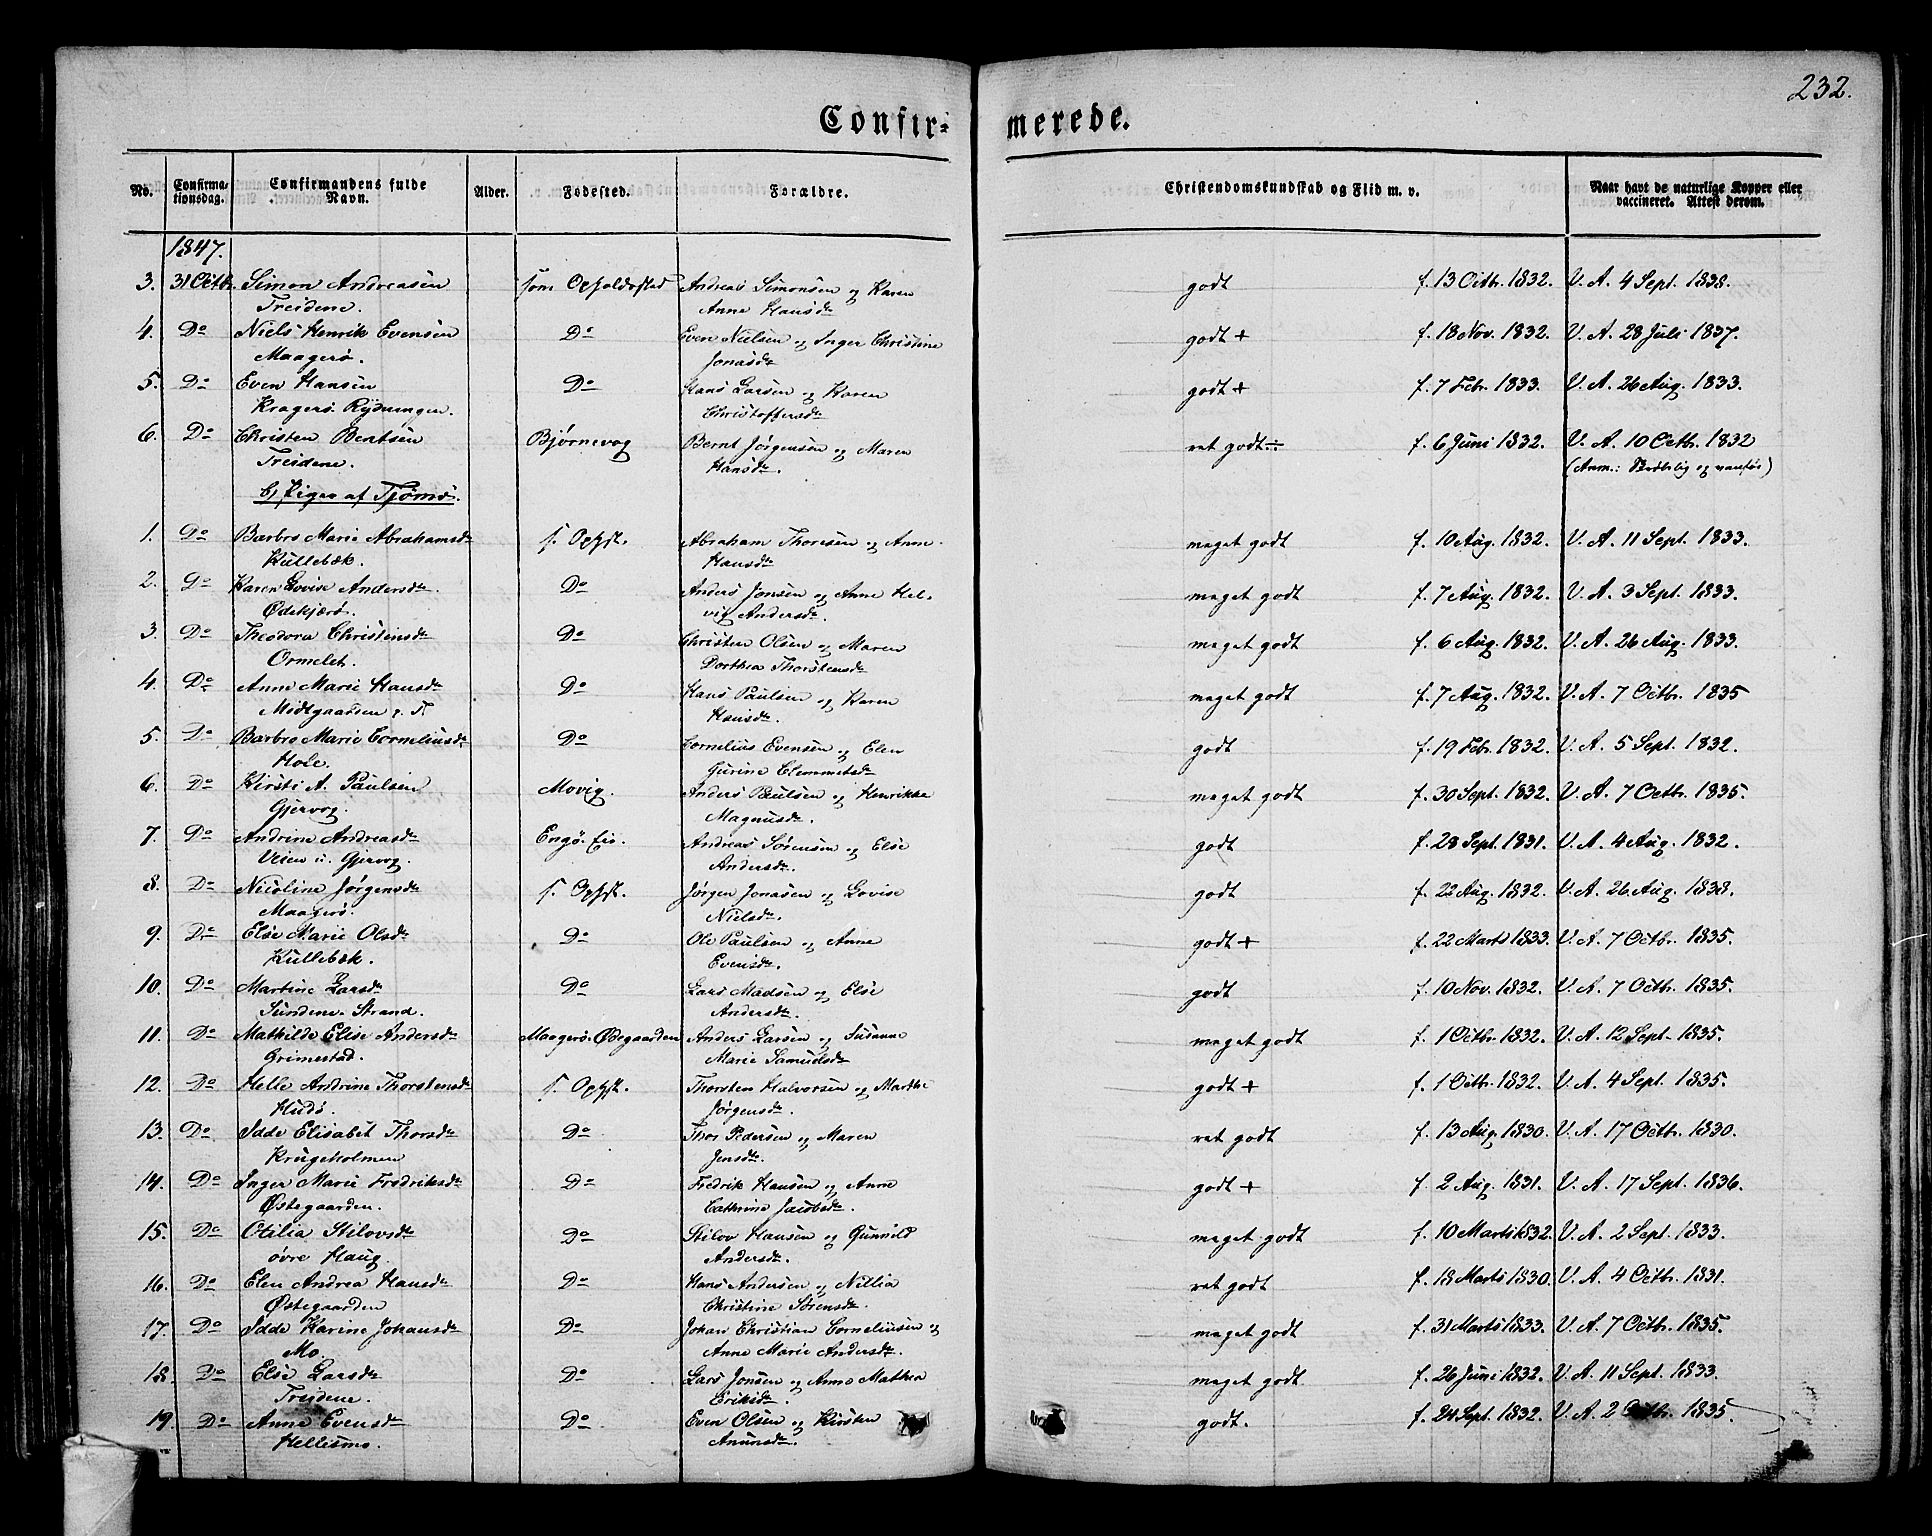 232.
Confir- merede.
No. Confirmationsdag. Confirmandens fulde Navn. Alder. Fodested. Forældre. Christendomskundskab og Flid m. v. Naar havt de naturlige Kopper eller vaccineret. Attest derom.
1847.
3. 31 Octb. Simon Andreasen som Opholdsted Andreas Simonsen og Karen godt f. 13 Octb. 1832. V. A. 4 Sept. 1838.
Treidene. Anne Hansdr
4. Do Niels Henrik Evensen Do Even Nielsen og Inger Christine godt + f. 18 Nov. 1832. V. A. 28 Juli 1837.
Maagerø. Jonasdr
5. Do Even Hansen Do Hans Larsen og Karen godt + f. 7 Febr. 1833. V. A. 26 Aug. 1833.
Kragerø Rydningen. Christoffersdr
6. Do Christen Berntsen Bjørnevog Bernt Jørgensen og Maren ret godt ÷ f. 6 Juni 1832. V. A. 10 Octb. 1832
Treidene. Hansdr. (Anm.: og vanfør)
b) Piger af Tjømø.
1. Do Barbro Marie Abrahamsdr f. Ophst. Abraham Thoresen og Anne meget godt f. 10 Aug. 1832. V. A. 11 Sept. 1833.
Kullebæk. Hansdr.
2. Do Karen Lovise Andersdr. Do Anders Jonsen og Anne Hel- meget godt f. 7 Aug. 1832. V. A. 3 Sept. 1833.
Ødekjære. vig Andersdr.
3. Do Theodora Christensdr Do Christen Olsen og Maren meget godt f. 6 Aug. 1832. V. A. 26 Aug. 1833.
Ormelet. Dorthea Thorstensdr
4. Do Anne Marie Hansdr Do Hans Paulsen og Karen meget godt f. 7 Aug. 1832. V. A. 7 Octbr. 1835
Midtgaarden p. T. Hansdr.
5. Do Barbro Marie Corneliusdr. Do Cornelius Evensen og Elen godt f. 19 Febr. 1832. V. A. 5 Sept. 1832.
Hole. Gurine Clemmetsdr
6. Do Kirsti A. Paulsen Movig. Anders Paulsen og Henrikke meget godt f. 30 Sept. 1832. V. A. 7 Octbr. 1835.
Gjervog. Magnusdr.
7. Do Andrine Andreasdr Engø. Eie. Andreas Sørensen og Else godt f. 28 Sept. 1831. V. A. 4 Aug. 1832.
Veien u. Gjervog. Andersdr.
8. Do Nicoline Jørgensdr f. Ophst. Jørgen Jonasen og Lovise godt f. 22 Aug. 1832. V. A. 26 Aug. 1838.
Maagerø. Nielsdr.
9. Do Else Marie Olsdr Do Ole Paulsen og Anne godt + f. 22 Marts 1833. V. A. 7 Octbr. 1835.
Kullebæk. Evensdr.
10. Do Martine Larsdr Do Lars Madsen og Else godt f. 10 Nov. 1832. V. A. 7 Octbr. 1835.
Sundene Strand. Andersdr.
11. Do Mathilde Elise Andersdr Maagerø. Ødegaarden Anders Larsen og Susanne meget godt f. 1 Octbr. 1832. V. A. 12 Sept. 1835.
Grimestad. Marie Samuelsdr
12. Do Helle Andrine Thorstensdr f. Ophst. Thorsten Halvorsen og Marthe godt + f. 1 Octbr. 1832. V. A. 4 Sept. 1835.
Hudø. Jørgensdr.
13. Do Idde Elisabet Thorsdr Do Thor Pedersen og Maren ret godt f. 13 Aug. 1830. V. A. 17 Octbr. 1830.
Krugeholmen Jensdr.
14. Do Inger Marie Fredriksdr Do Fredrik Hansen og Anne godt + f. 2 Aug. 1831. V. A. 17 Sept. 1836.
Østegaarden. Cathrine Jacobsdr.
15. Do Otilia Stilovsdr Do Stilov Hansen og Gunnild meget godt f. 10 Marts 1832. V. A. 2 Sept. 1833.
øvre Haug. Andersdr.
16. Do Elen Andrea Hansdr Do Hans Andersen og Nillia ret godt f. 18 Marts 1830. V. A. 4 Octbr. 1831.
Østegaarden Christine Sørensdr.
17. Do Idde Karine Johansdr Do Johan Christian Corneliusen og meget godt f. 31 Marts 1833. V. A. 7 Octbr. 1835.
Mo. Anne Marie Andersdr.
18. Do Else Larsdr Do Lars Jonsen og Anne Mathea meget godt f. 26 Juni 1832. V. A. 11 Sept. 1833.
Treidene. Eriksdr.
19. Do Anne Evensdr Do Even Olsen og Kirsten godt. f. 24 Sept. 1832. V. A. 2 Octbr. 1835.
Hellesmo. Amundsdr.